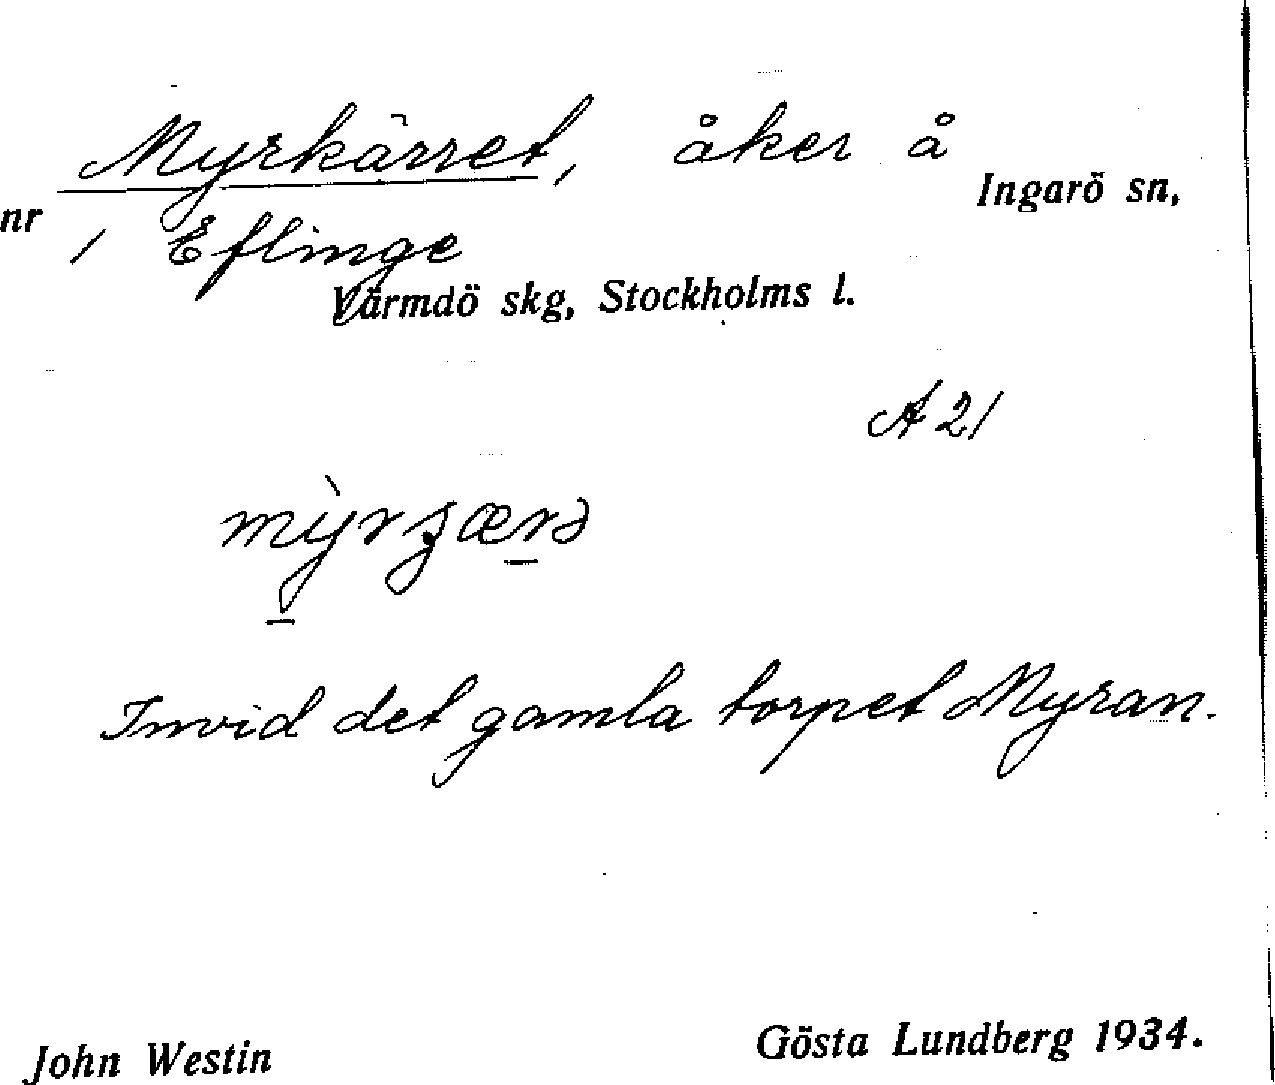 Myrkärret, åker å
Ingarö sn,
nr 1 Eflinge
Värmdö skg, Stockholms l.
A 21
Invid det gamla torpet Myran.
John Westin
Gösta Lundberg 1934.